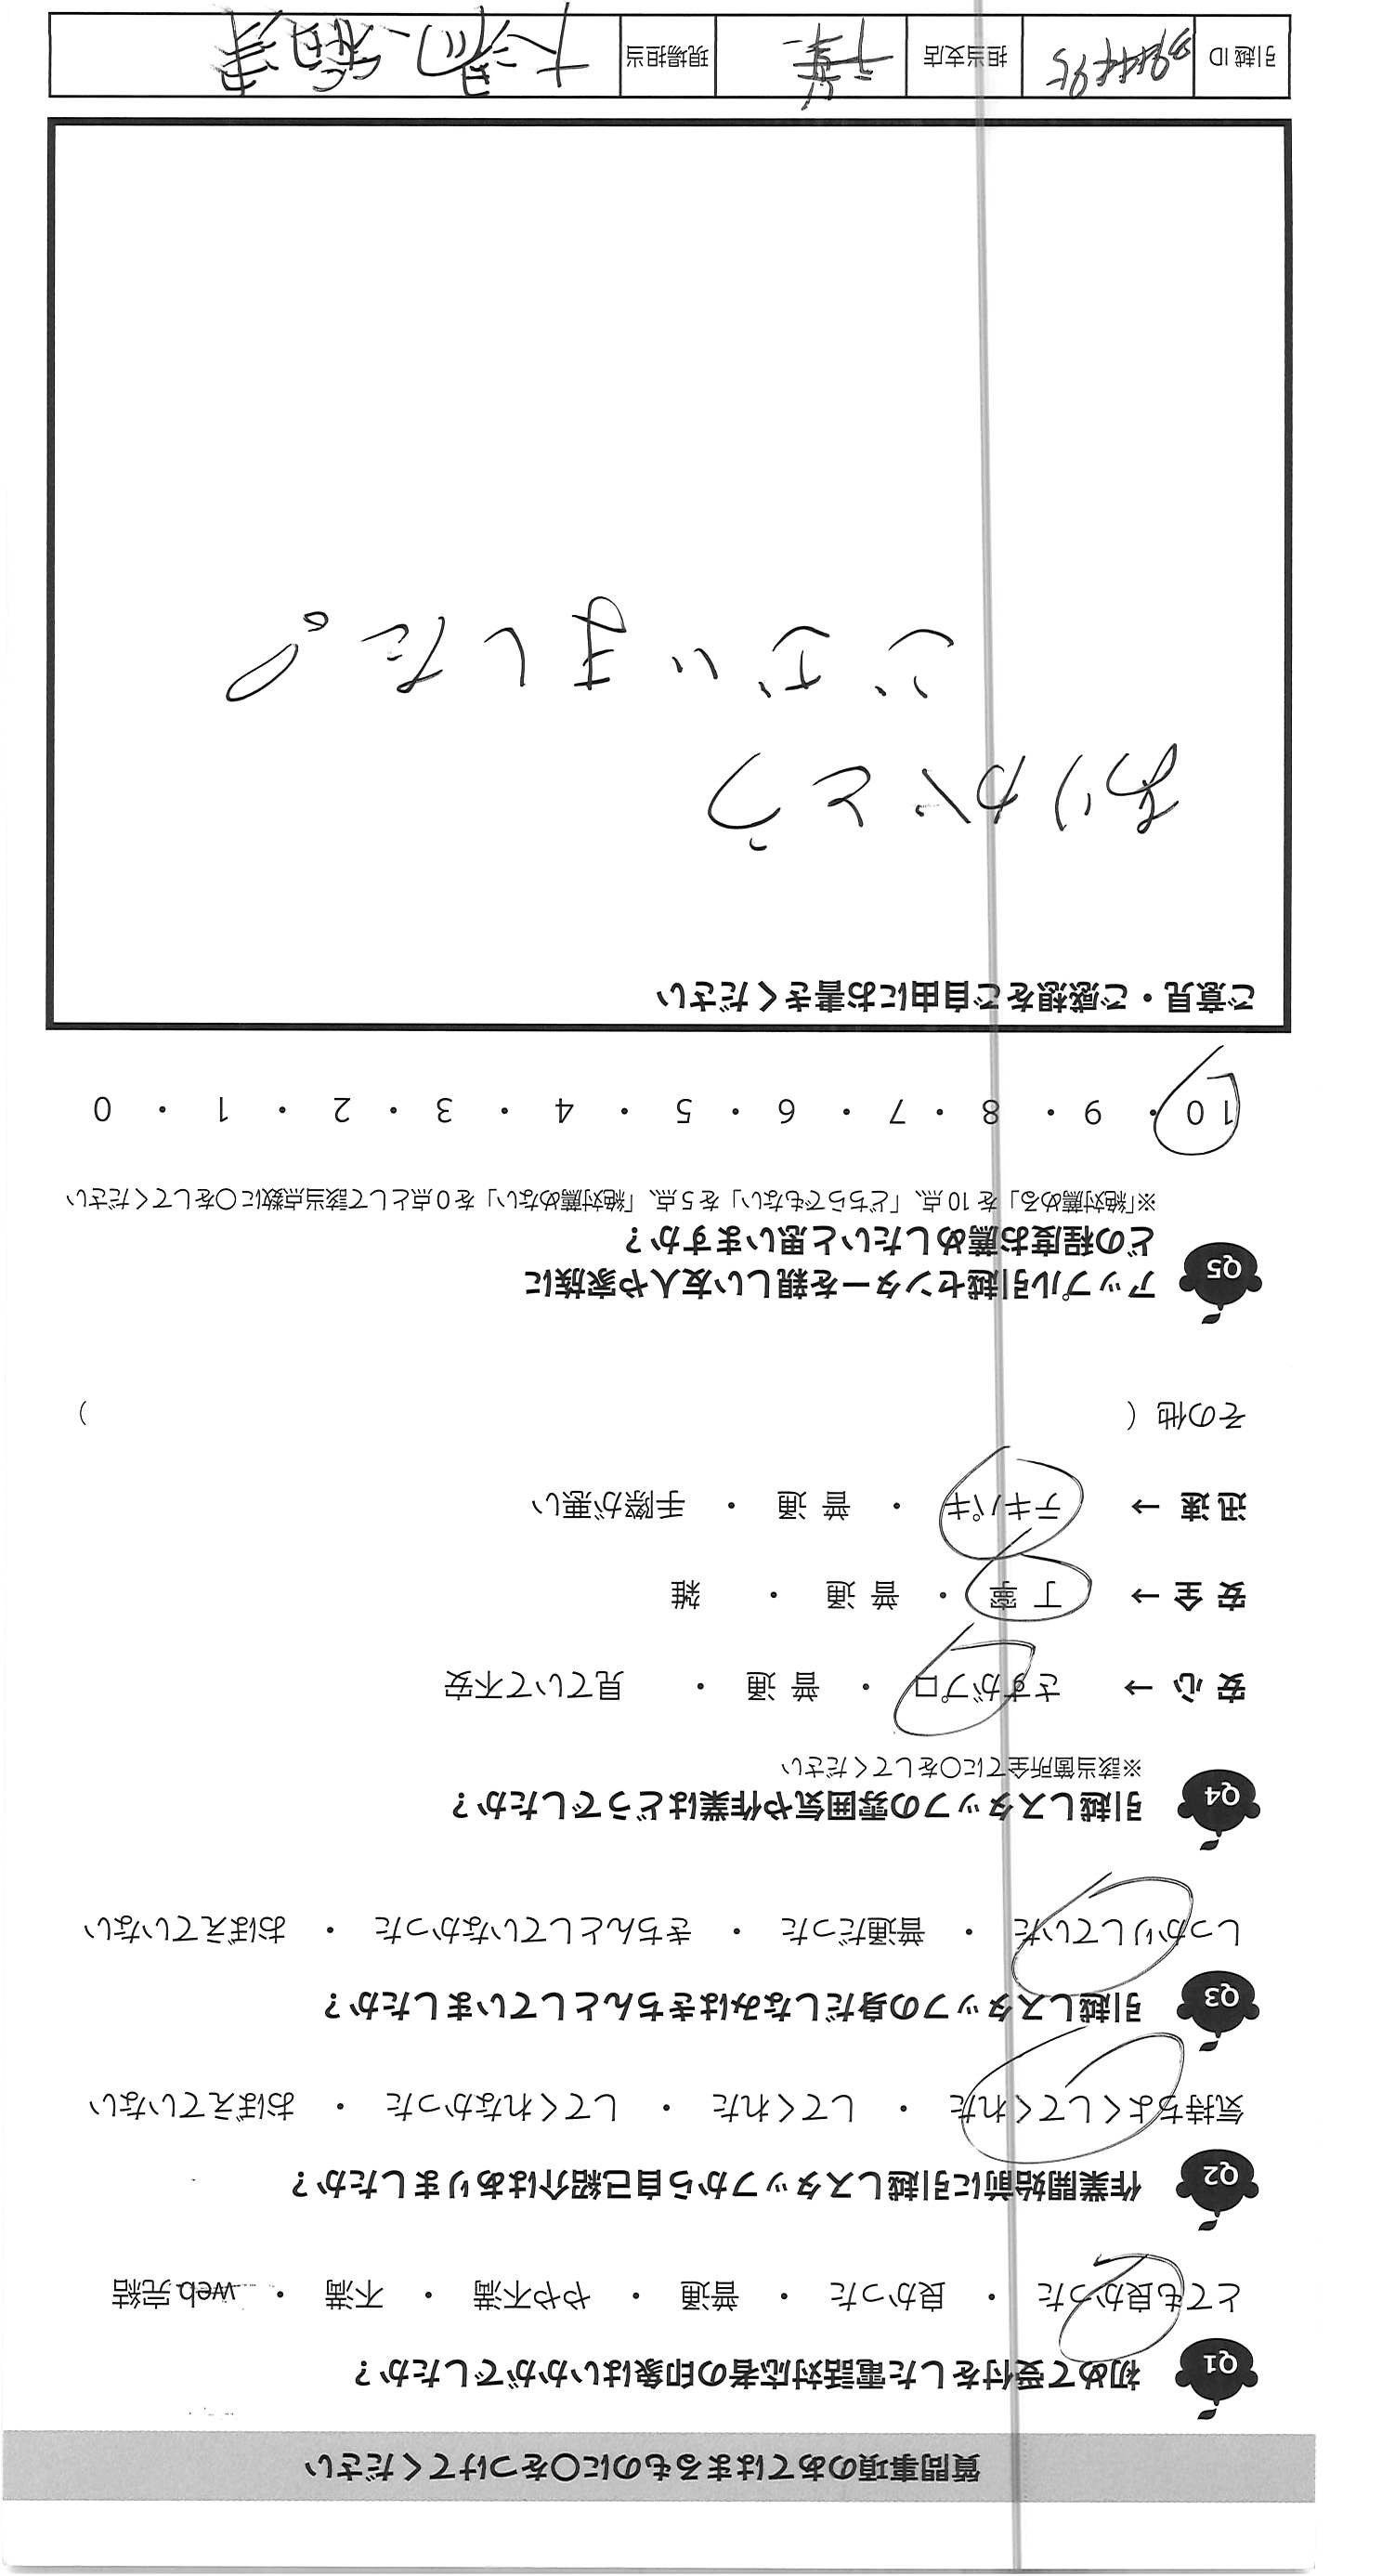 質問事項のあてはまるものに〇をつけてください
Q1 初めて受付をした電話対応者の印象はいかがでしたか?
とても良かった ・ 良かった ・ 普通 ・ やや不満 ・ 不満 ・ web完結
Q2 作業開始前に引越しスタッフから自己紹介はありましたか?
気持ちよくしてくれた ・ してくれた ・ してくれなかった ・ おぼえていない
Q3 引越しスタッフの身だしなみはきちんとしていましたか?
しっかりしていた ・ 普通だった ・ きちんとしていなかった ・ おぼえていない
Q4 引越しスタッフの雰囲気や作業はどうでしたか?
※該当箇所全てに〇をしてください
安心 → さすがプロ ・ 普通 ・ 見ていて不安
安全 → 丁寧 ・ 普通 ・ 雑
迅速 → テキパキ ・ 普通 ・ 手際が悪い
その他 ( )
Q5 アップル引越センターを親しい友人や家族に
どの程度お薦めしたいと思いますか?
※「絶対薦める」を10点、「どちらでもない」を5点、「絶対薦めない」を0点として該当点数に〇をしてください
10 ・ 9 ・ 8 ・ 7 ・ 6 ・ 5 ・ 4 ・ 3 ・ 2 ・ 1 ・ 0
ご意見・ご感想をご自由にお書きください
ありがとう
ございました。
引越ID 担当支店 千葉 現場担当